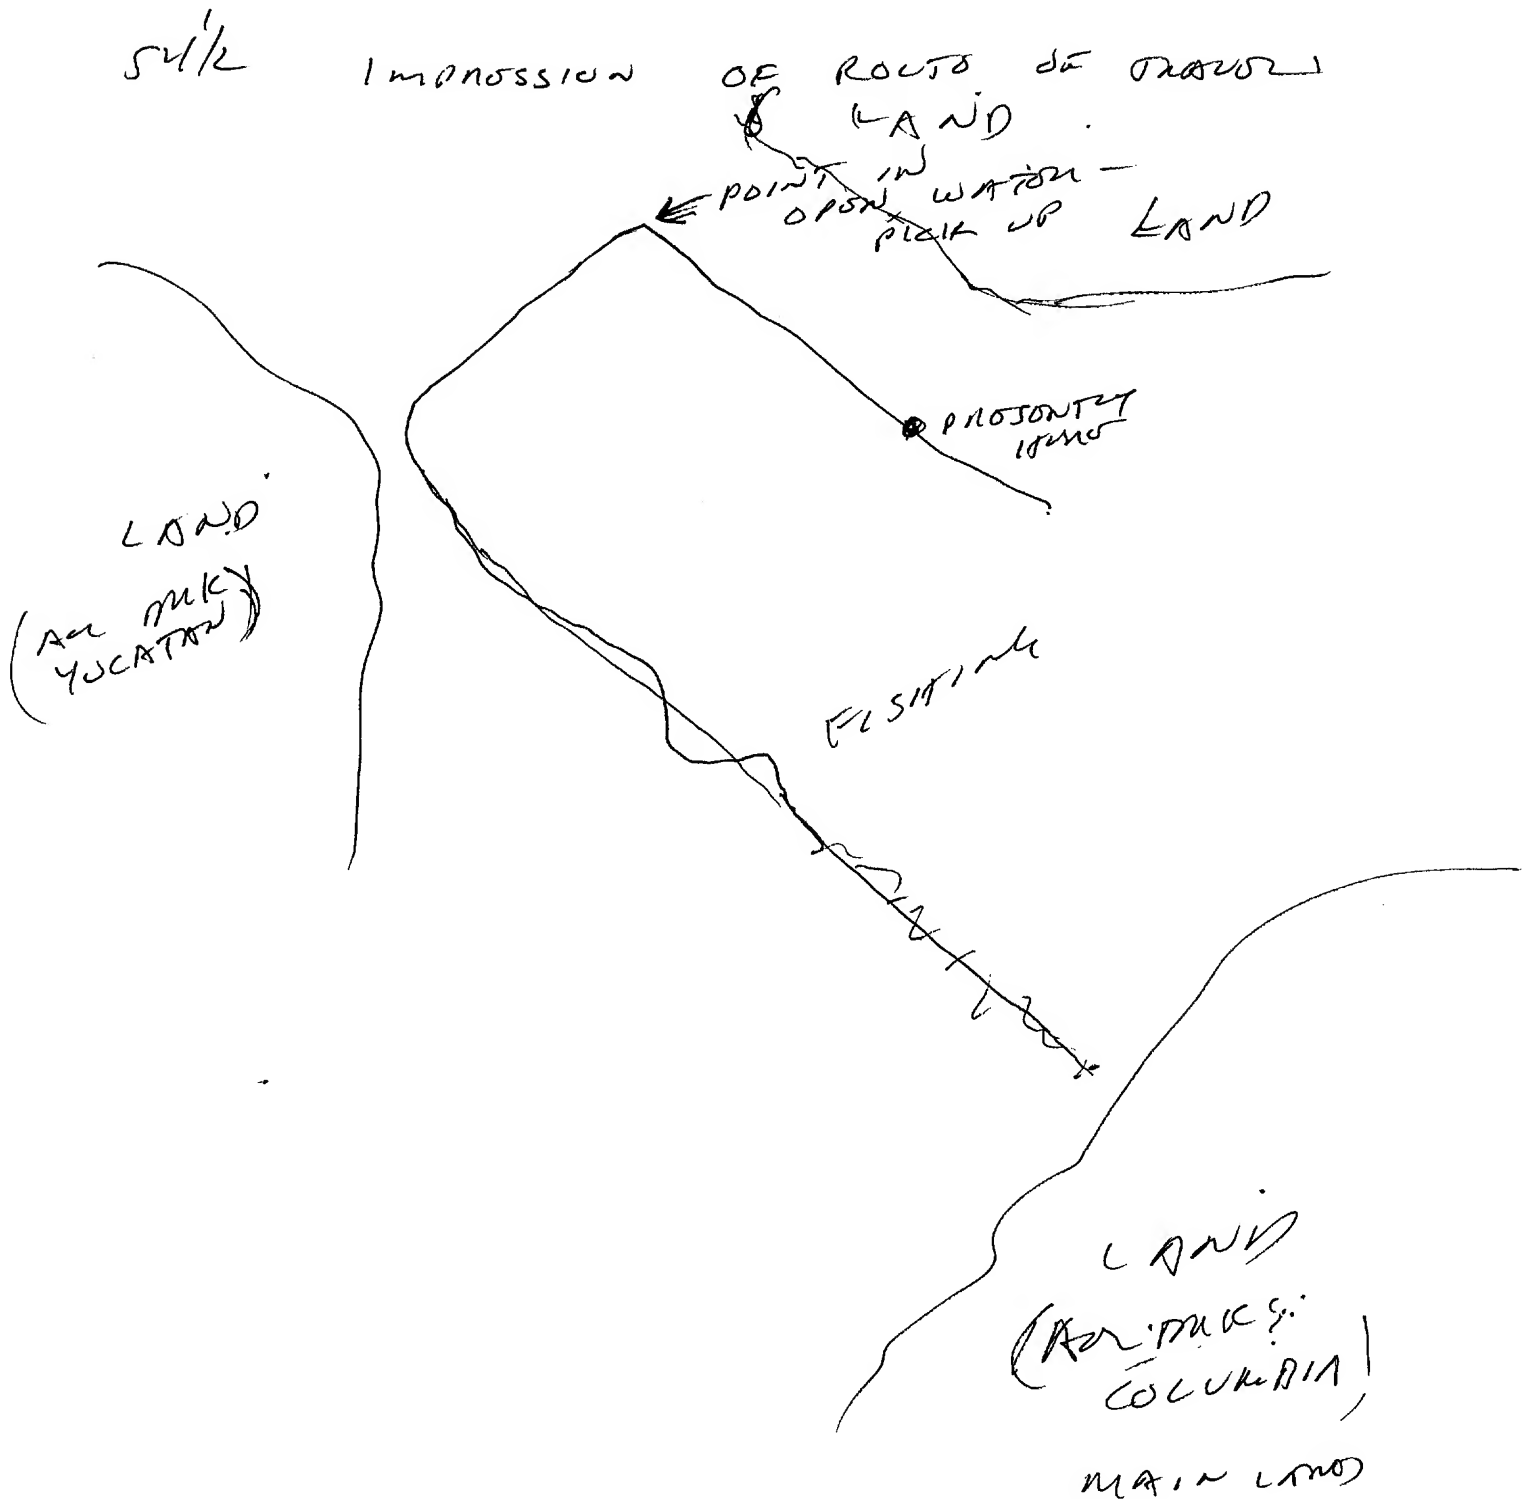 IMPRESSION OF ROUTE OF TRAVEL
LAND
POINT IN
OPEN WATER -
PICK UP
LAND
PRESENTLY
HERE
LAND
YUCATAN)
FISHING
LAND
COLUMBIA)
MAIN LAND